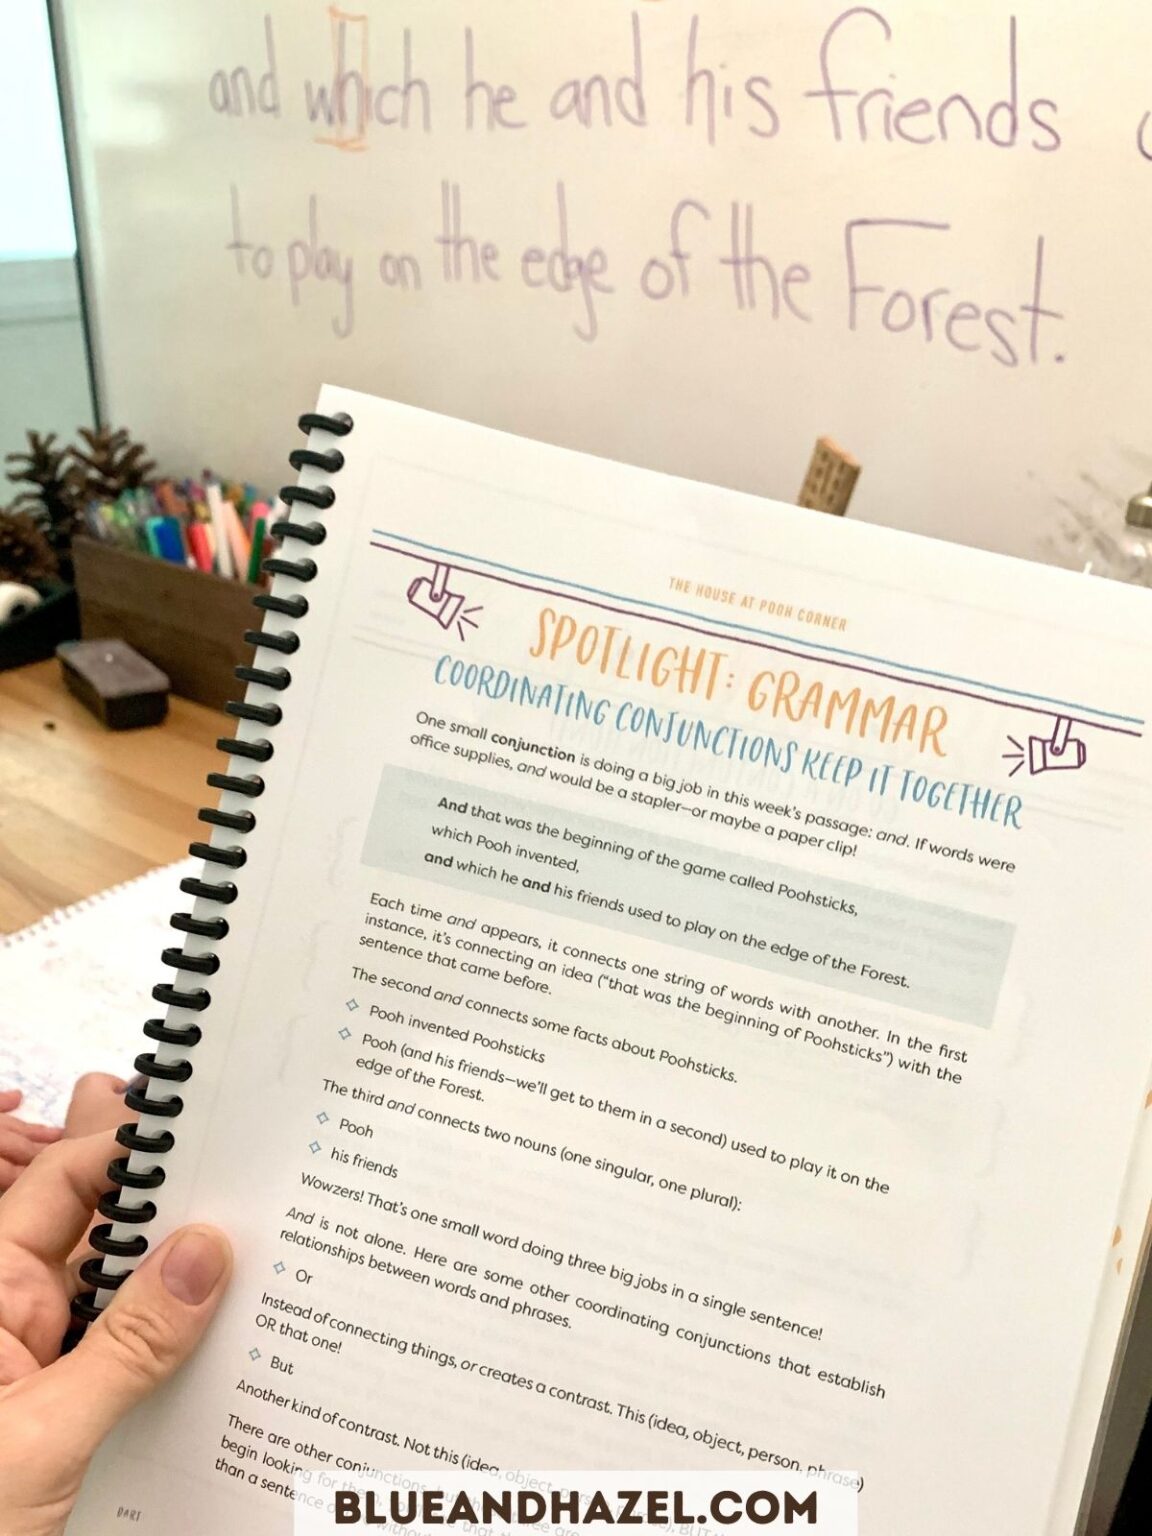 and which he and his friends
to play on the edge of the Forest.
THE HOUSE AT POOH CORNER
SPOTLIGHT: GRAMMAR
COORDINATING CONJUNCTIONS KEEP IT TOGETHER
One small conjunction is doing a big job in this week's passage: and. If words were
office supplies, and would be a stapler—or maybe a paper clip!
And that was the beginning of the game called Poohsticks,
which Pooh invented,
and which he and his friends used to play on the edge of the Forest.
Each time and appears, it connects one string of words with another. In the first
instance, it's connecting an idea ("that was the beginning of Poohsticks") with the
sentence that came before.
The second and connects some facts about Poohsticks.
Pooh invented Poohsticks
Pooh (and his friends—we'll get to them in a second) used to play it on the
edge of the Forest.
The third and connects two nouns (one singular, one plural):
Pooh
his friends
Wowzers! That's one small word doing three big jobs in a single sentence!
And is not alone. Here are some other coordinating conjunctions that establish
relationships between words and phrases.
Or
Instead of connecting things, or creates a contrast. This (idea, object, person, phrase)
OR that one!
But
Another kind of contrast. Not this (idea, object,
There are other conjunctions,
begin looking for
than a sentence
DART
BLUEANDHAZEL.COM